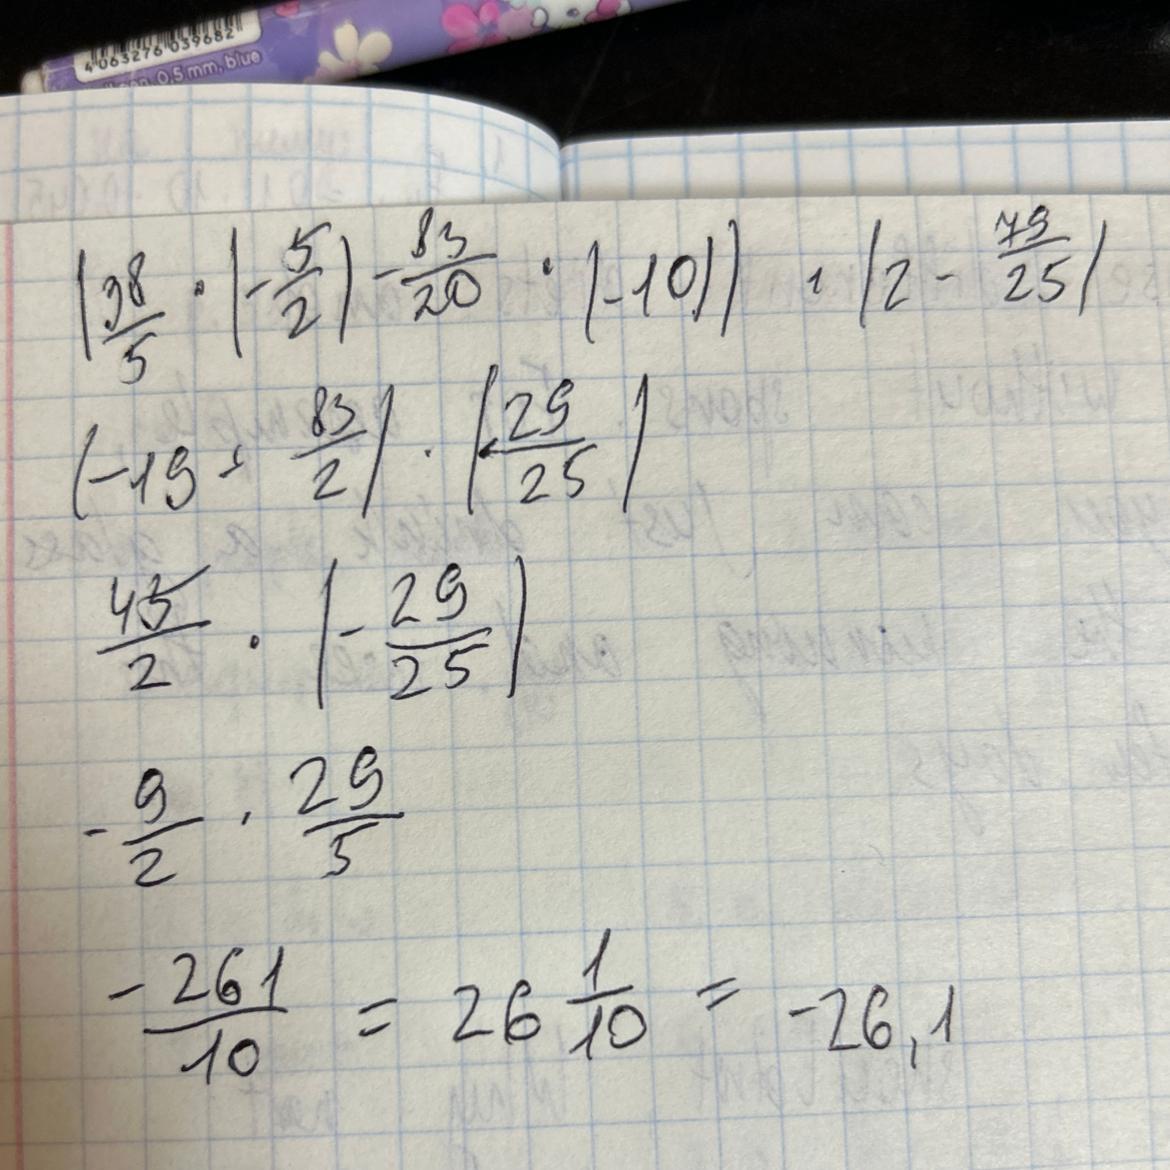 4063276039682
0,5 mm, blue
(38/5 · (-5/2) - 83/20 · (-10)) · (2 - 79/25)
(-19 + 83/2) · (-29/25)
45/2 · (-29/25)
-9/2 · 29/5
-261/10 = 26 1/10 = -26,1